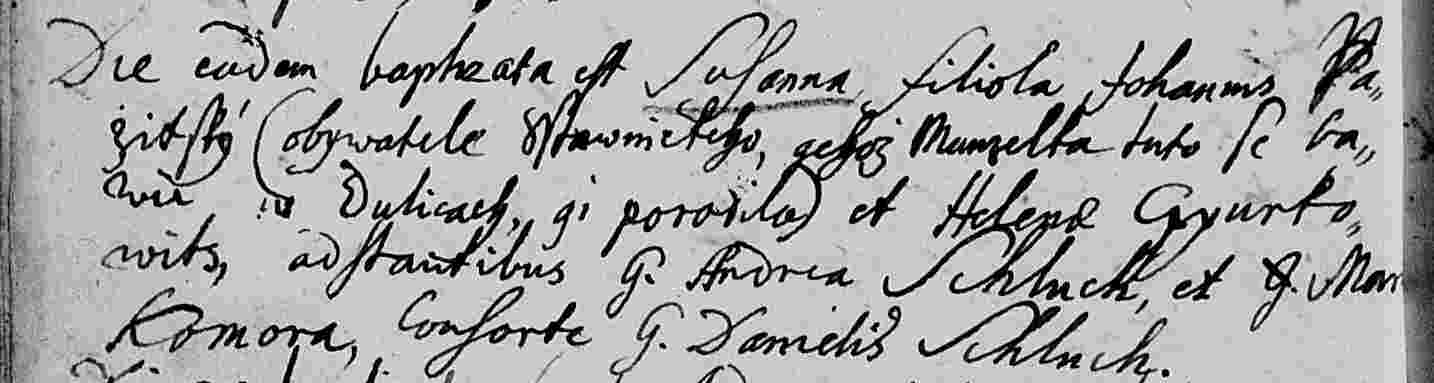 Die eadem baptizata est Susanna, filiola Johannis Pa„
žitský (obywatele Sstawnickeho, gehož Manzelka tuto se ba„
wic w Dulicach, gi porodila) et Helenæ Gyurko„
wits, adstantibus G. Andrea Schluch, et G. Mari
Komora, Consorte G. Danielis Schluch.